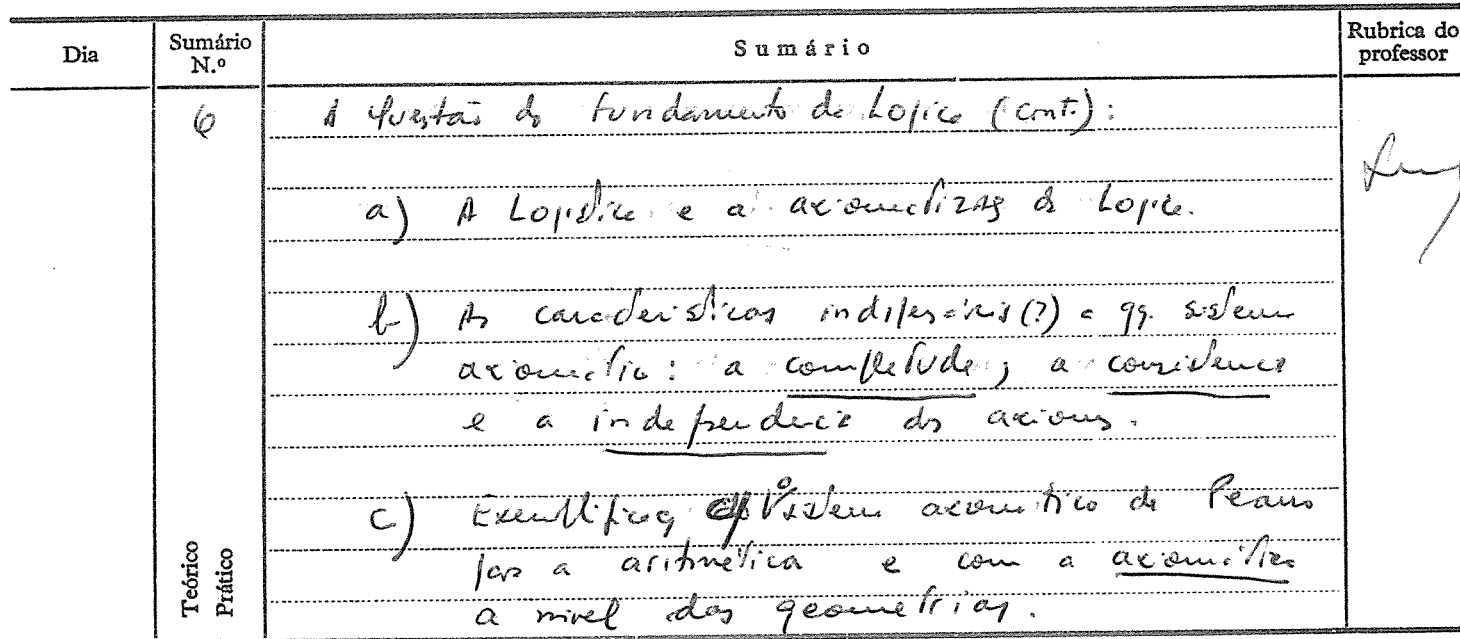 Dia
Sumário N.º
Sumário
Rubrica do professor
6
A Questão do fundamento da Logica (cont.):
a) A Logistica e a axiomatização da Logica.
b) As caracteristicas indispensáveis (?) a qq. sistema
axiomático: a completude; a consistencia
e a independencia dos axiomas.
c) Exemplificação c/ o sistema axiomático de Peano
para a aritmética e com a axiomática
a nivel das geometrias.
Teórico
Prático